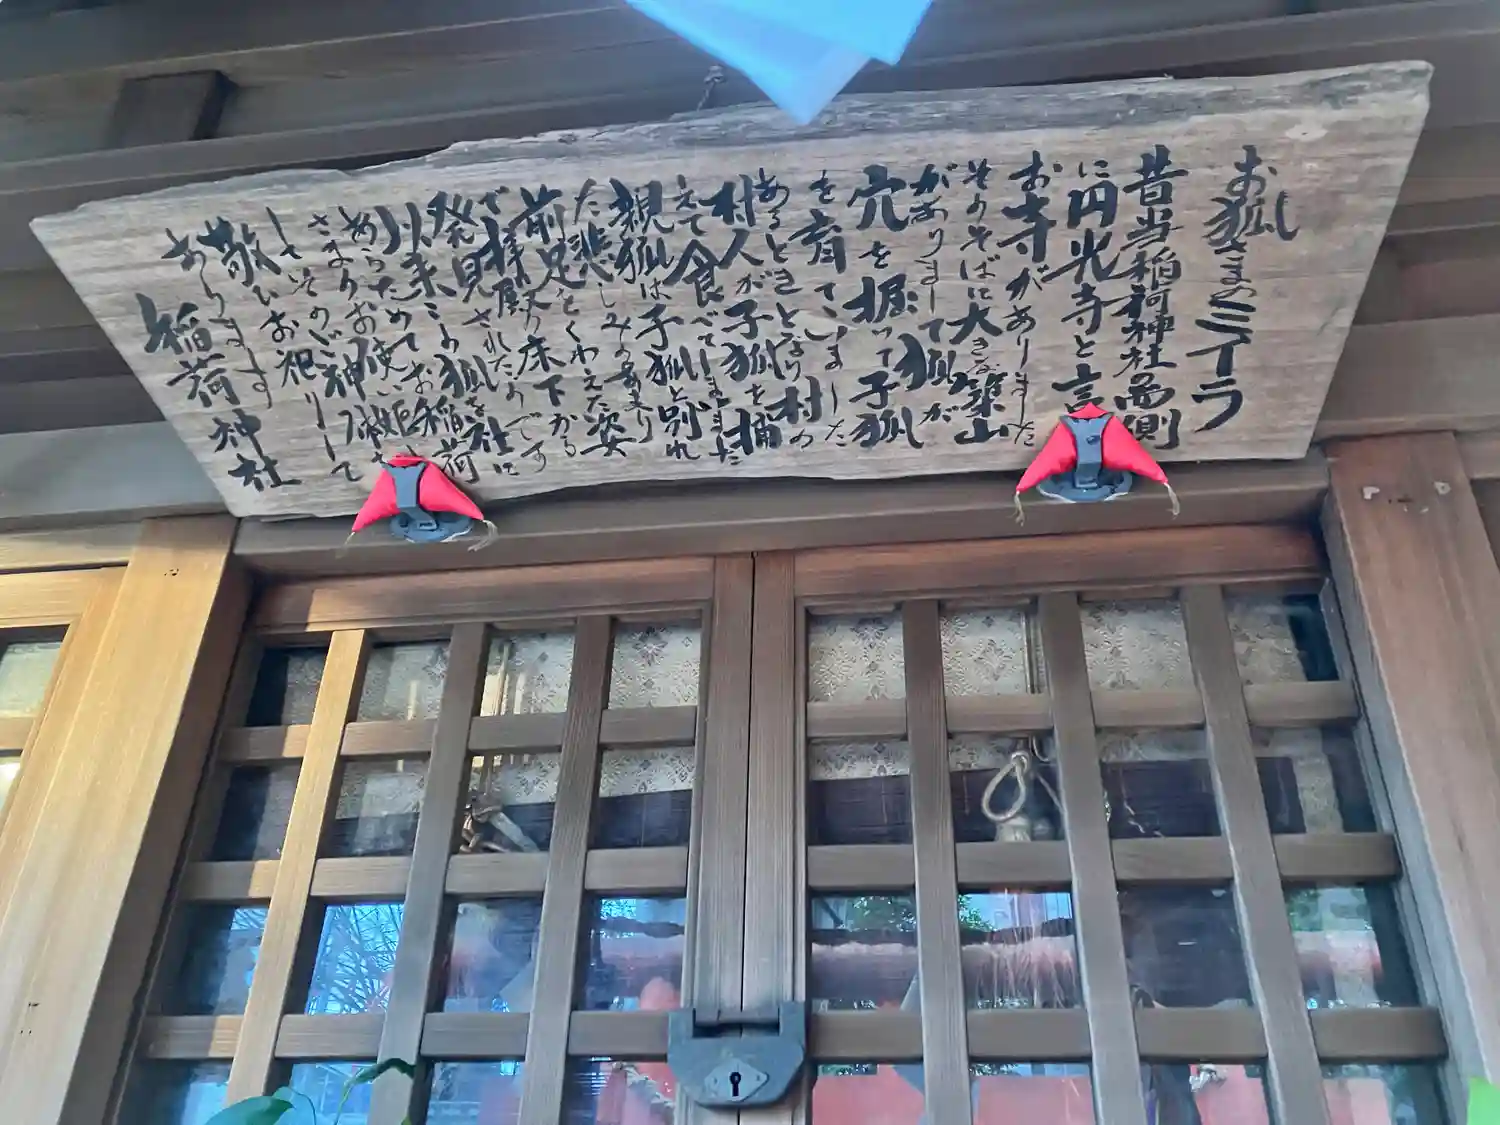 お狐さまのミイラ
昔当稲荷神社西側
に円光寺と言
お寺がありました
そのそばに大きな築山
がありまして狐が
穴を掘って子狐
を育ていました
あるときとなり村の
村人が子狐を捕
えて食べてしまました
親狐は子狐と別れ
た悲しみの余り
前足をくわえた姿
で拝殿の床下から
発見されたのです
以来この狐を社に
あらためてお稲荷
さまのお使い姫さ
しさいそのご神
敬ひお祀りして
あります
稲荷神社